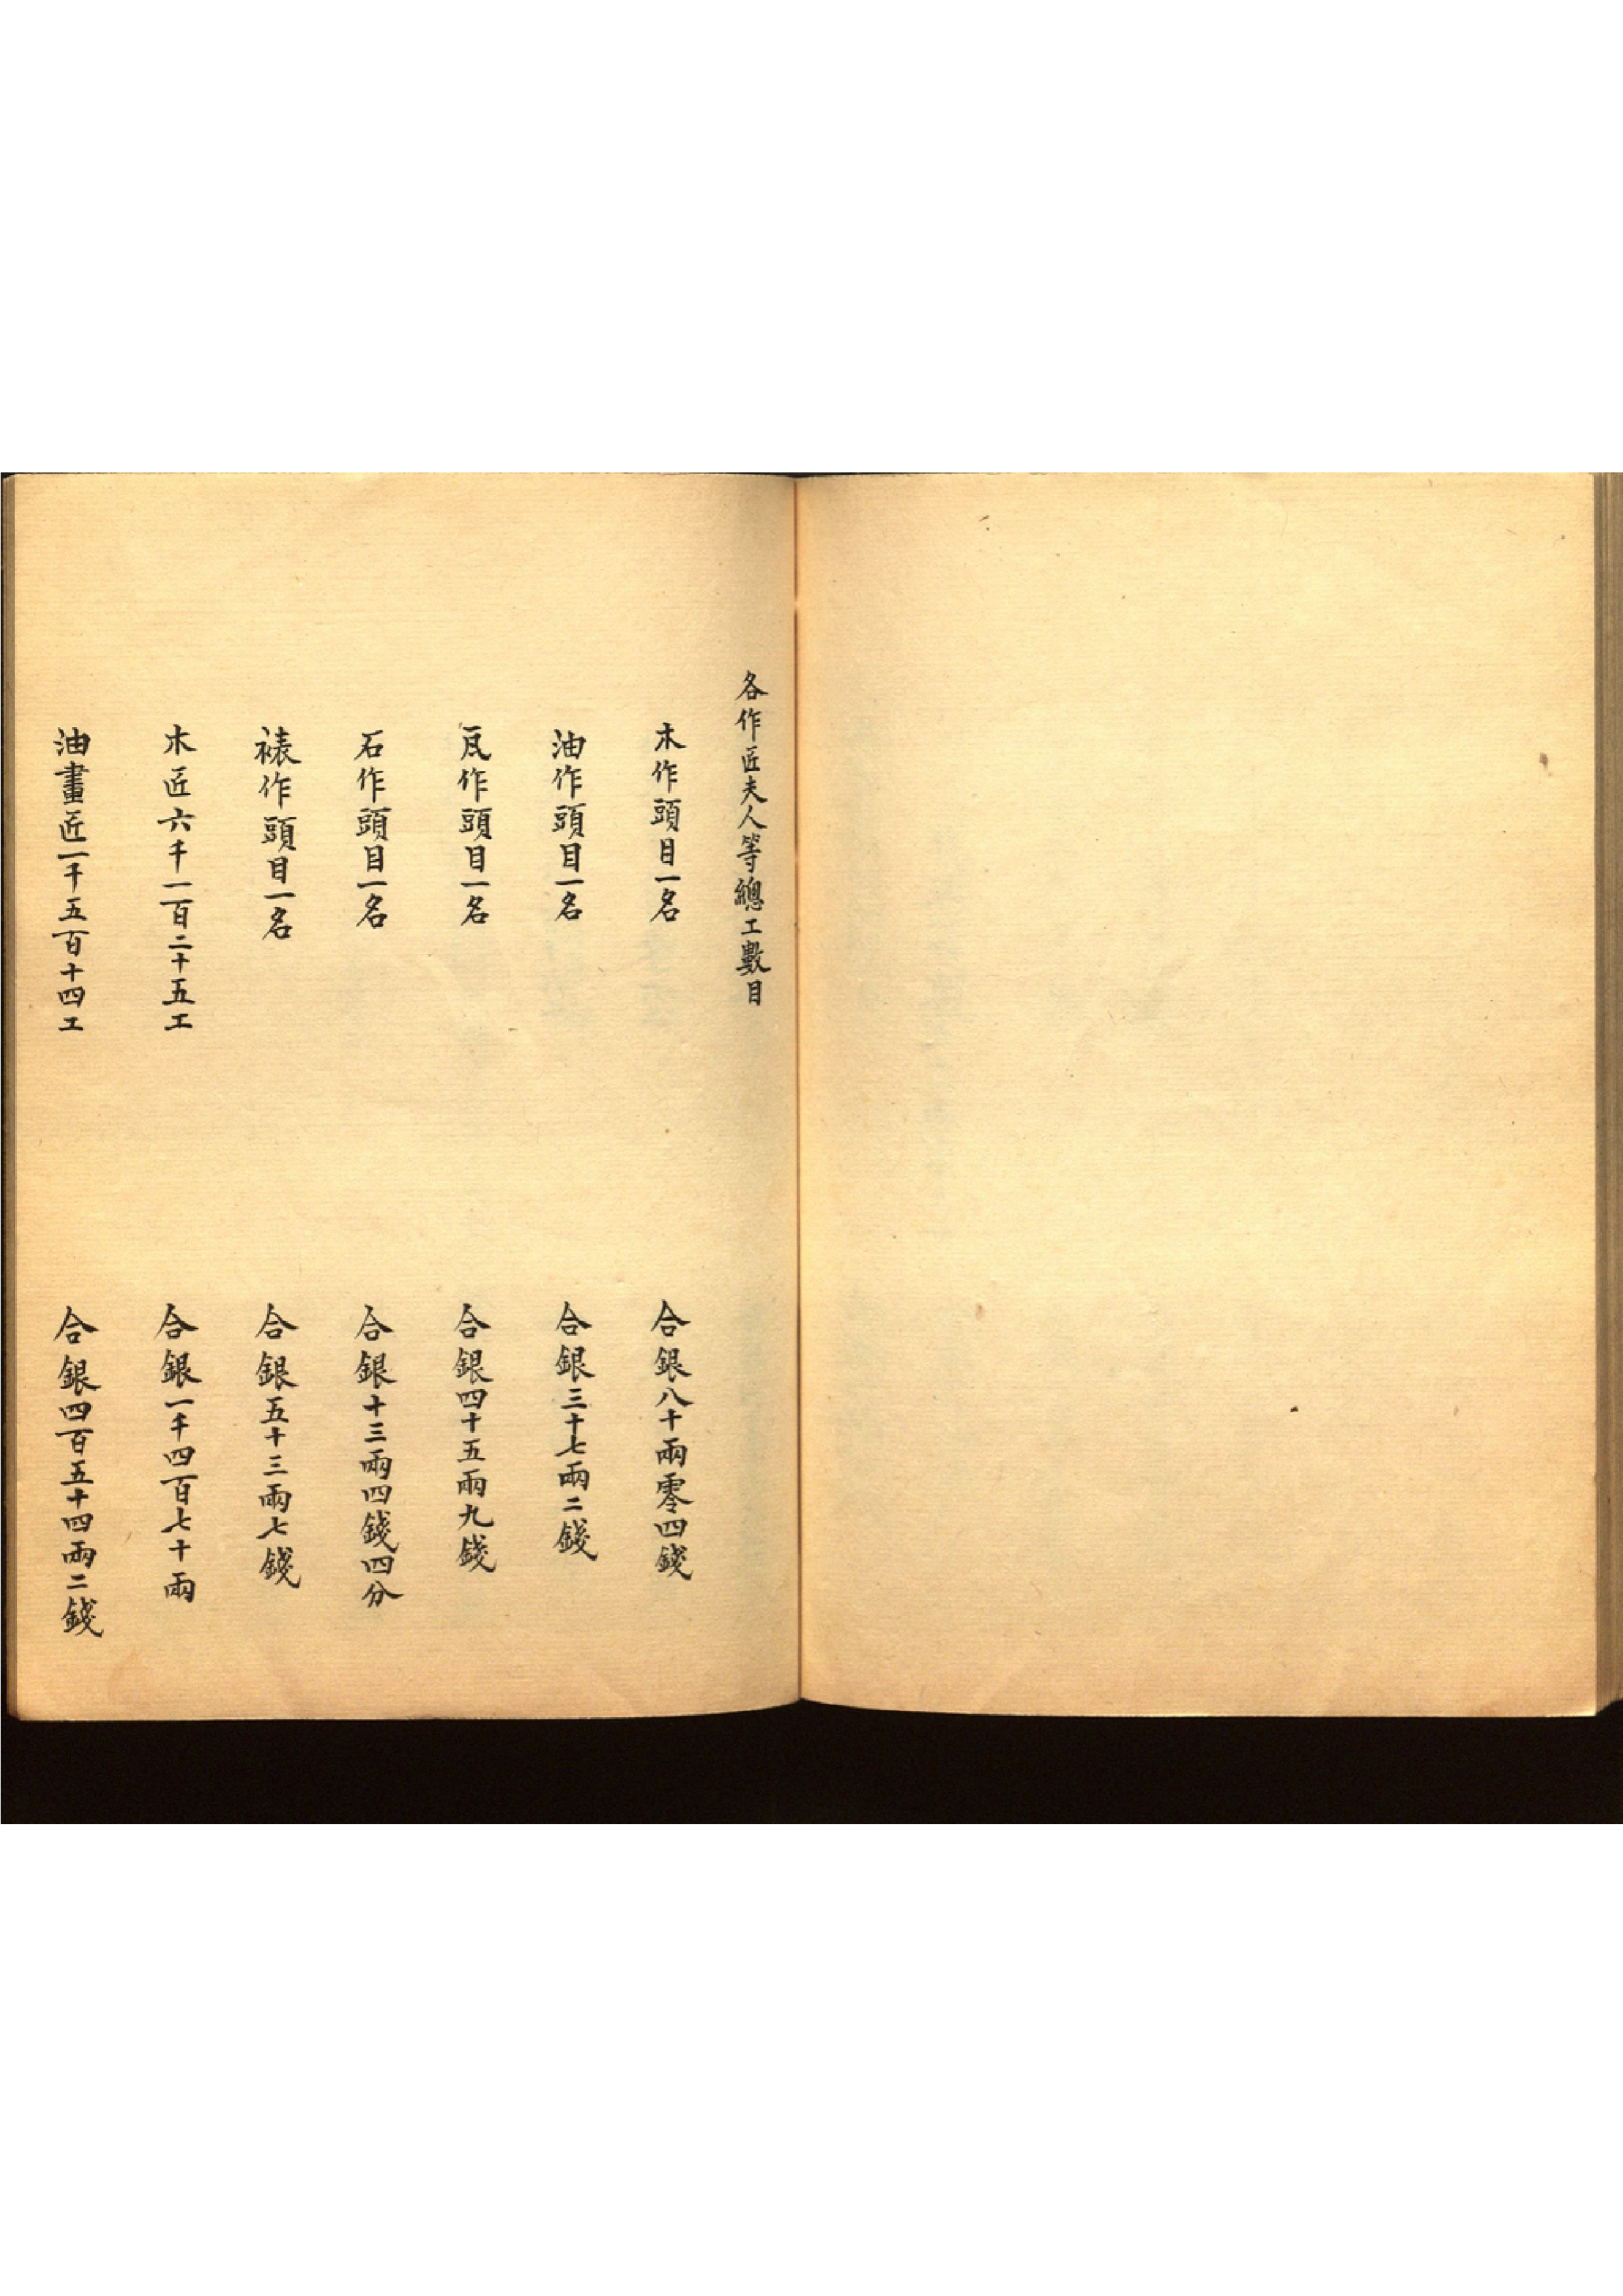 各作匠夫人等總工數目
木作頭目一名　合銀八十兩零四錢
油作頭目一名　合銀三十七兩二錢
瓦作頭目一名　合銀四十五兩九錢
石作頭目一名　合銀十三兩四錢四分
裱作頭目一名　合銀五十三兩七錢
木匠六千一百二十五工　合銀一千四百七十兩
油畫匠一千五百十四工　合銀四百五十四兩二錢